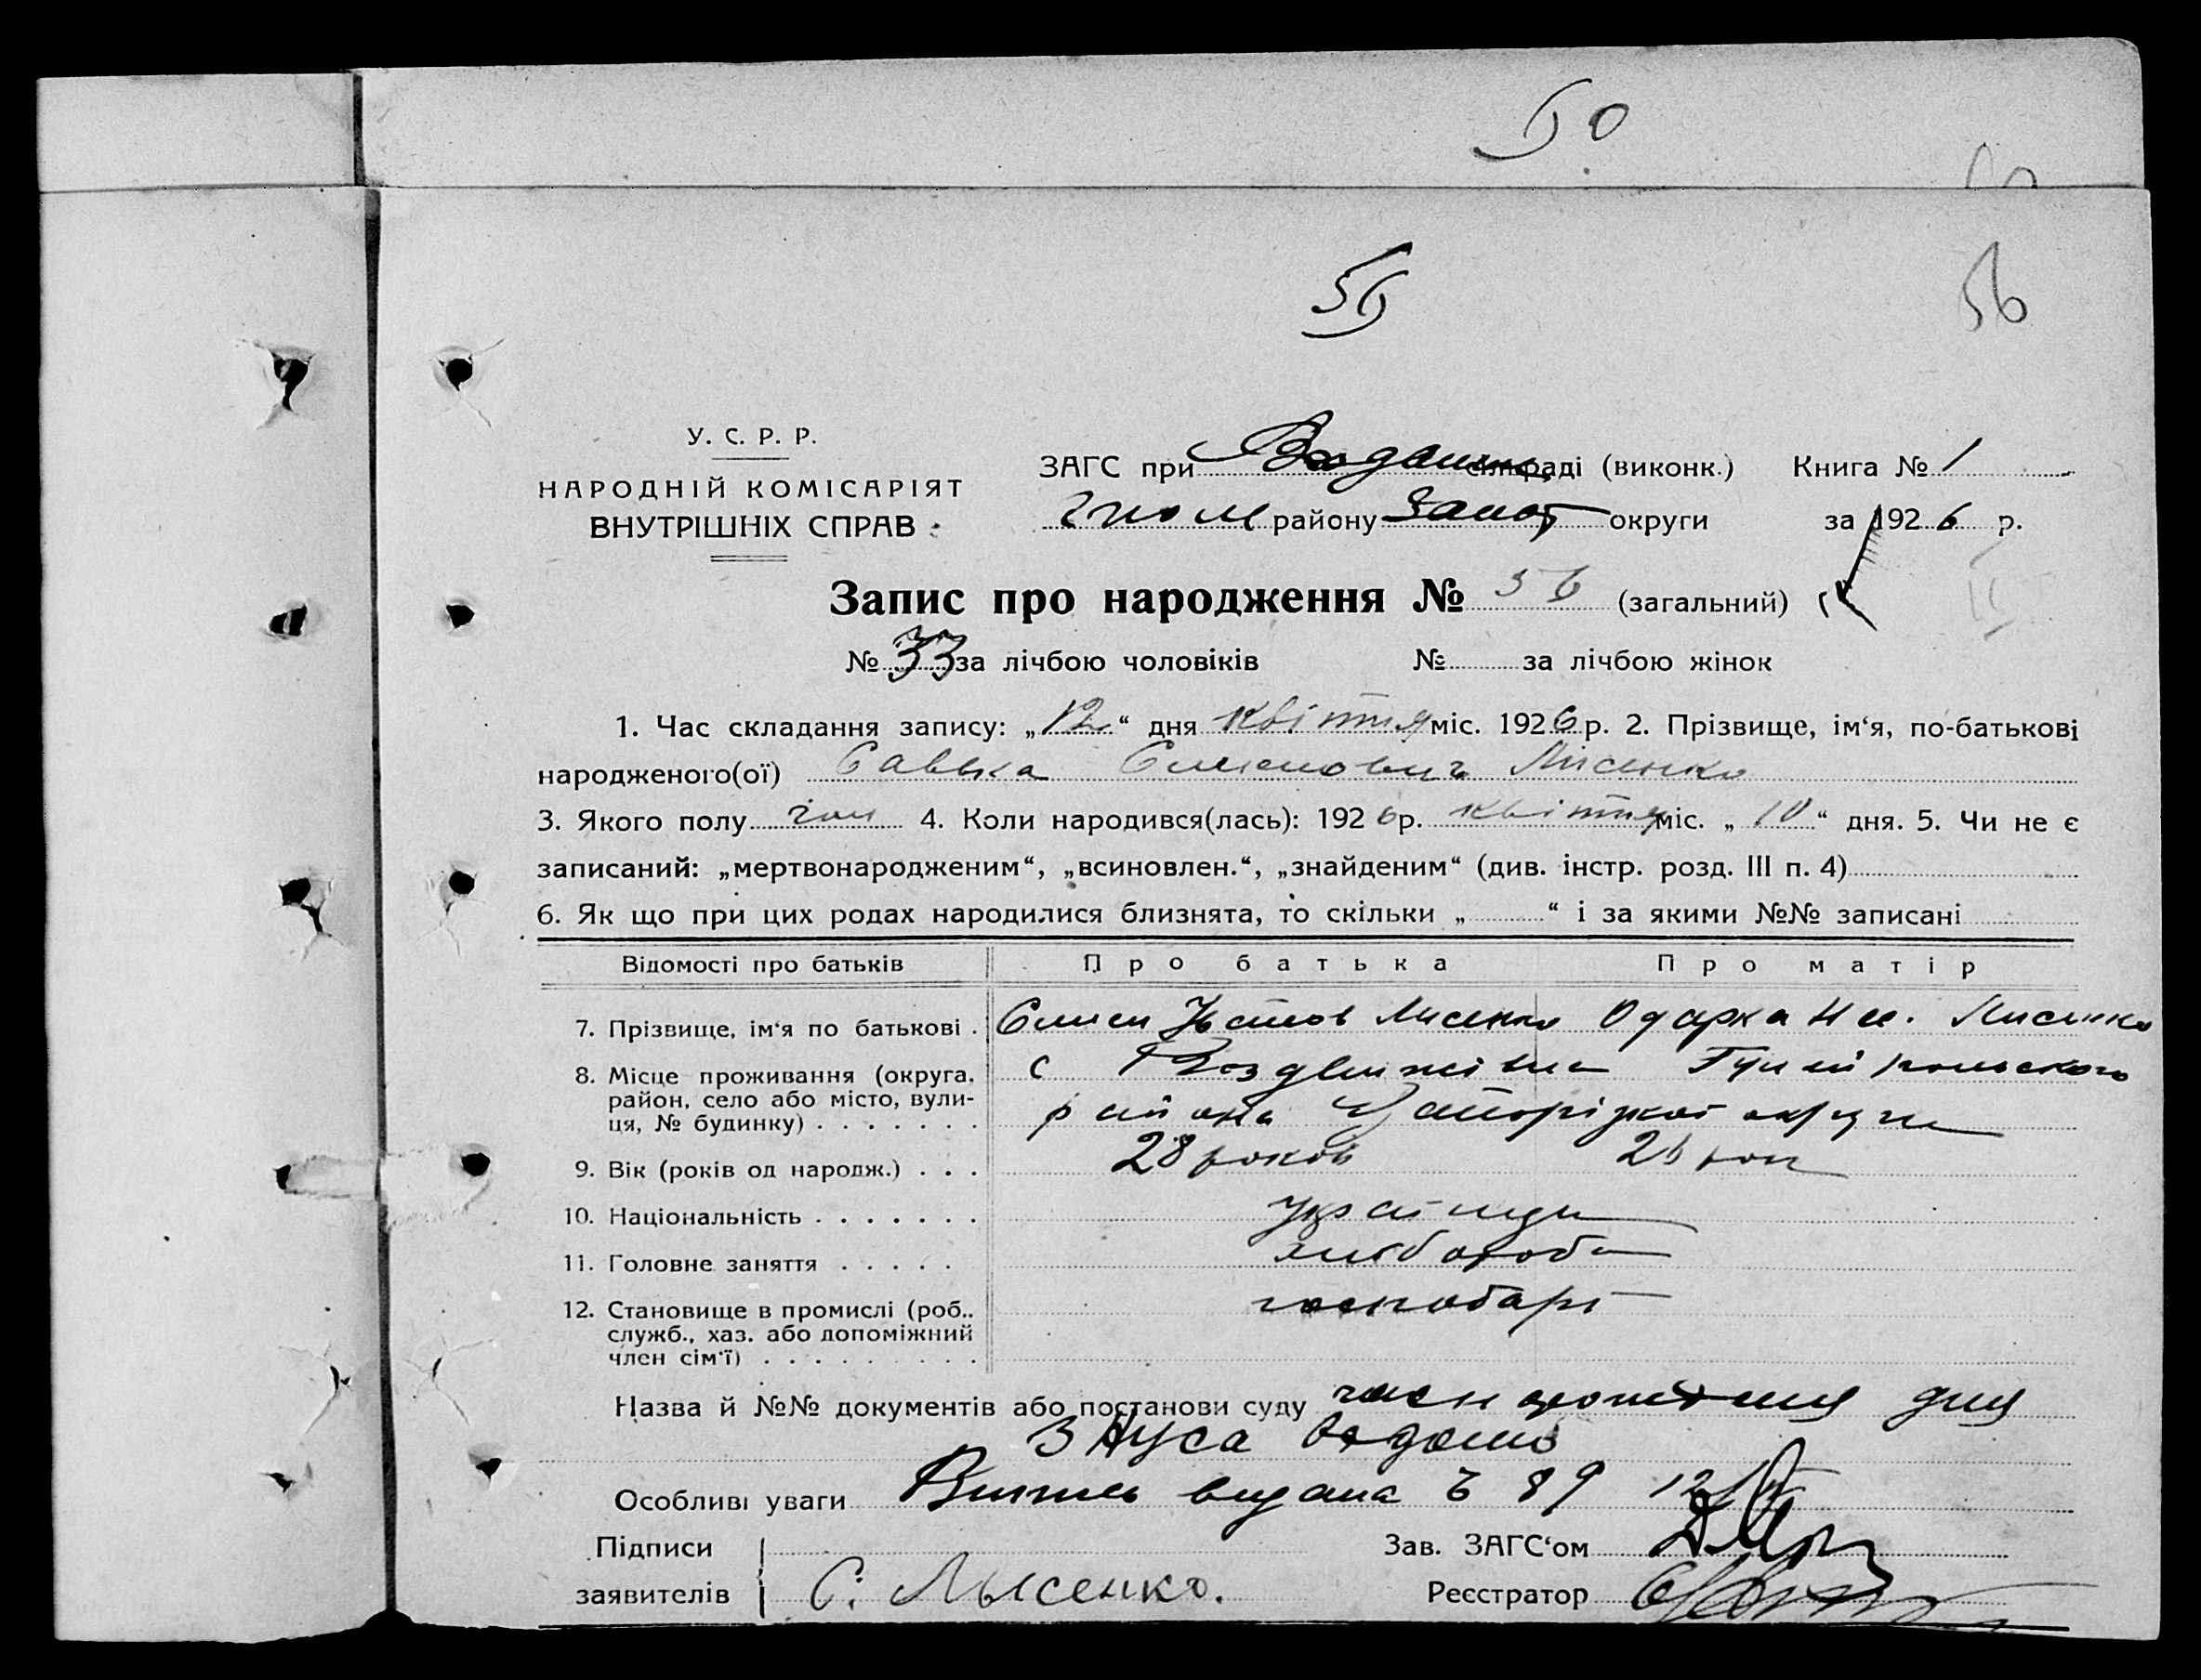 50
56
56
У. С. Р. Р.
НАРОДНІЙ КОМІСАРІЯТ
ВНУТРІШНІХ СПРАВ
ЗАГС при сільраді (виконк.) Книга № 1
району Запор округи за 1926 р.
Запис про народження № 56 (загальний)
№ 33 за лічбою чоловіків № за лічбою жінок
1. Час складання запису: „12“ дня квітня міс. 1926 р. 2. Прізвище, ім‘я, по-батькові
народженого(ої) Савка Семенович Лисенко
3. Якого полу чол 4. Коли народився(лась): 1926 р. квітня міс. „10“ дня. 5. Чи не є
записаний: „мертвонародженим“, „всиновлен.“, „знайденим“ (див. інстр. розд. III п. 4)
6. Як що при цих родах народилися близнята, то скільки „ “ і за якими №№ записані
Відомості про батьків Про батька Про матір
7. Прізвище, ім‘я по батькові . Семен Лисенко Одарка Лисенко
8. Місце проживання (округа, с Воздвижівка Гуляйпольского
район, село або місто, вули-
ця, № будинку) . . . . . . . района Запорізкої округи
9. Вік (років од народж.) . . . 28 роков 26 рок
10. Національність . . . . . . . українци
11. Головне заняття . . . . . хлібороби
12. Становище в промислі (роб., господарі
служб., хаз. або допоміжний
член сім‘ї) . . . . . . . . .
Назва й №№ документів або постанови суду для
Особливі уваги Витяг видана 89 12/IV
Підписи Зав. ЗАГС‘ом
заявителів С. Лысенко. Реєстратор